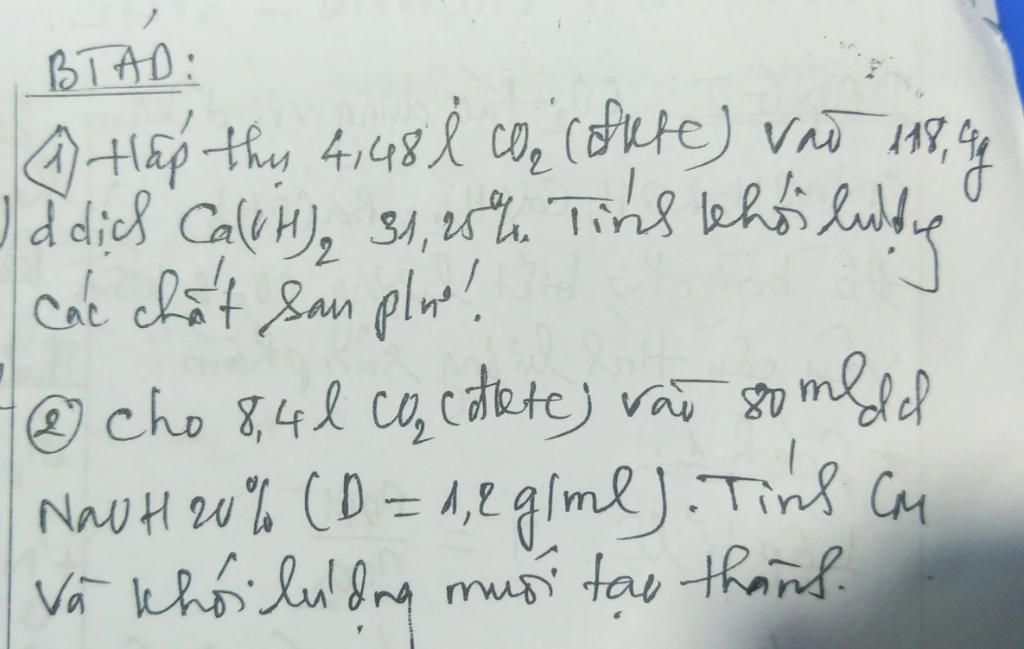 BTÁD:
① Hấp thụ 4,48 l CO₂ (đktc) vào 118,4g
d dịch Ca(OH)₂ 31,25%. Tính khối lượng
các chất sau pứ!
② Cho 8,4 l CO₂ (đktc) vào 80 ml dd
NaOH 20% (D = 1,2 g/ml). Tính CM
và khối lượng muối tạo thành.